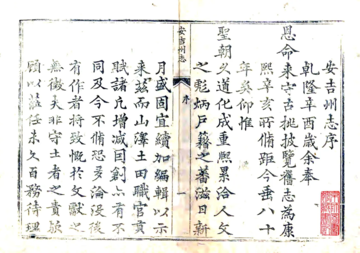 安吉州志序
乾隆辛酉歲余奉
恩命來守古桃披覽舊志為康
熙辛亥所脩距今垂八十
年矣仰惟
聖朝久道化成重熙累洽人文
之彪炳戶籍之蕃滋日新
安吉州志
序
一
月盛固宜續加編輯以示
來茲而山澤土田職官貢
賦諸凡增減因創亦有不
同及今不脩恐多淪沒後
有作者將致慨於文獻之
無徵矣非守土者之責歟
顧以蒞任未久百務待理